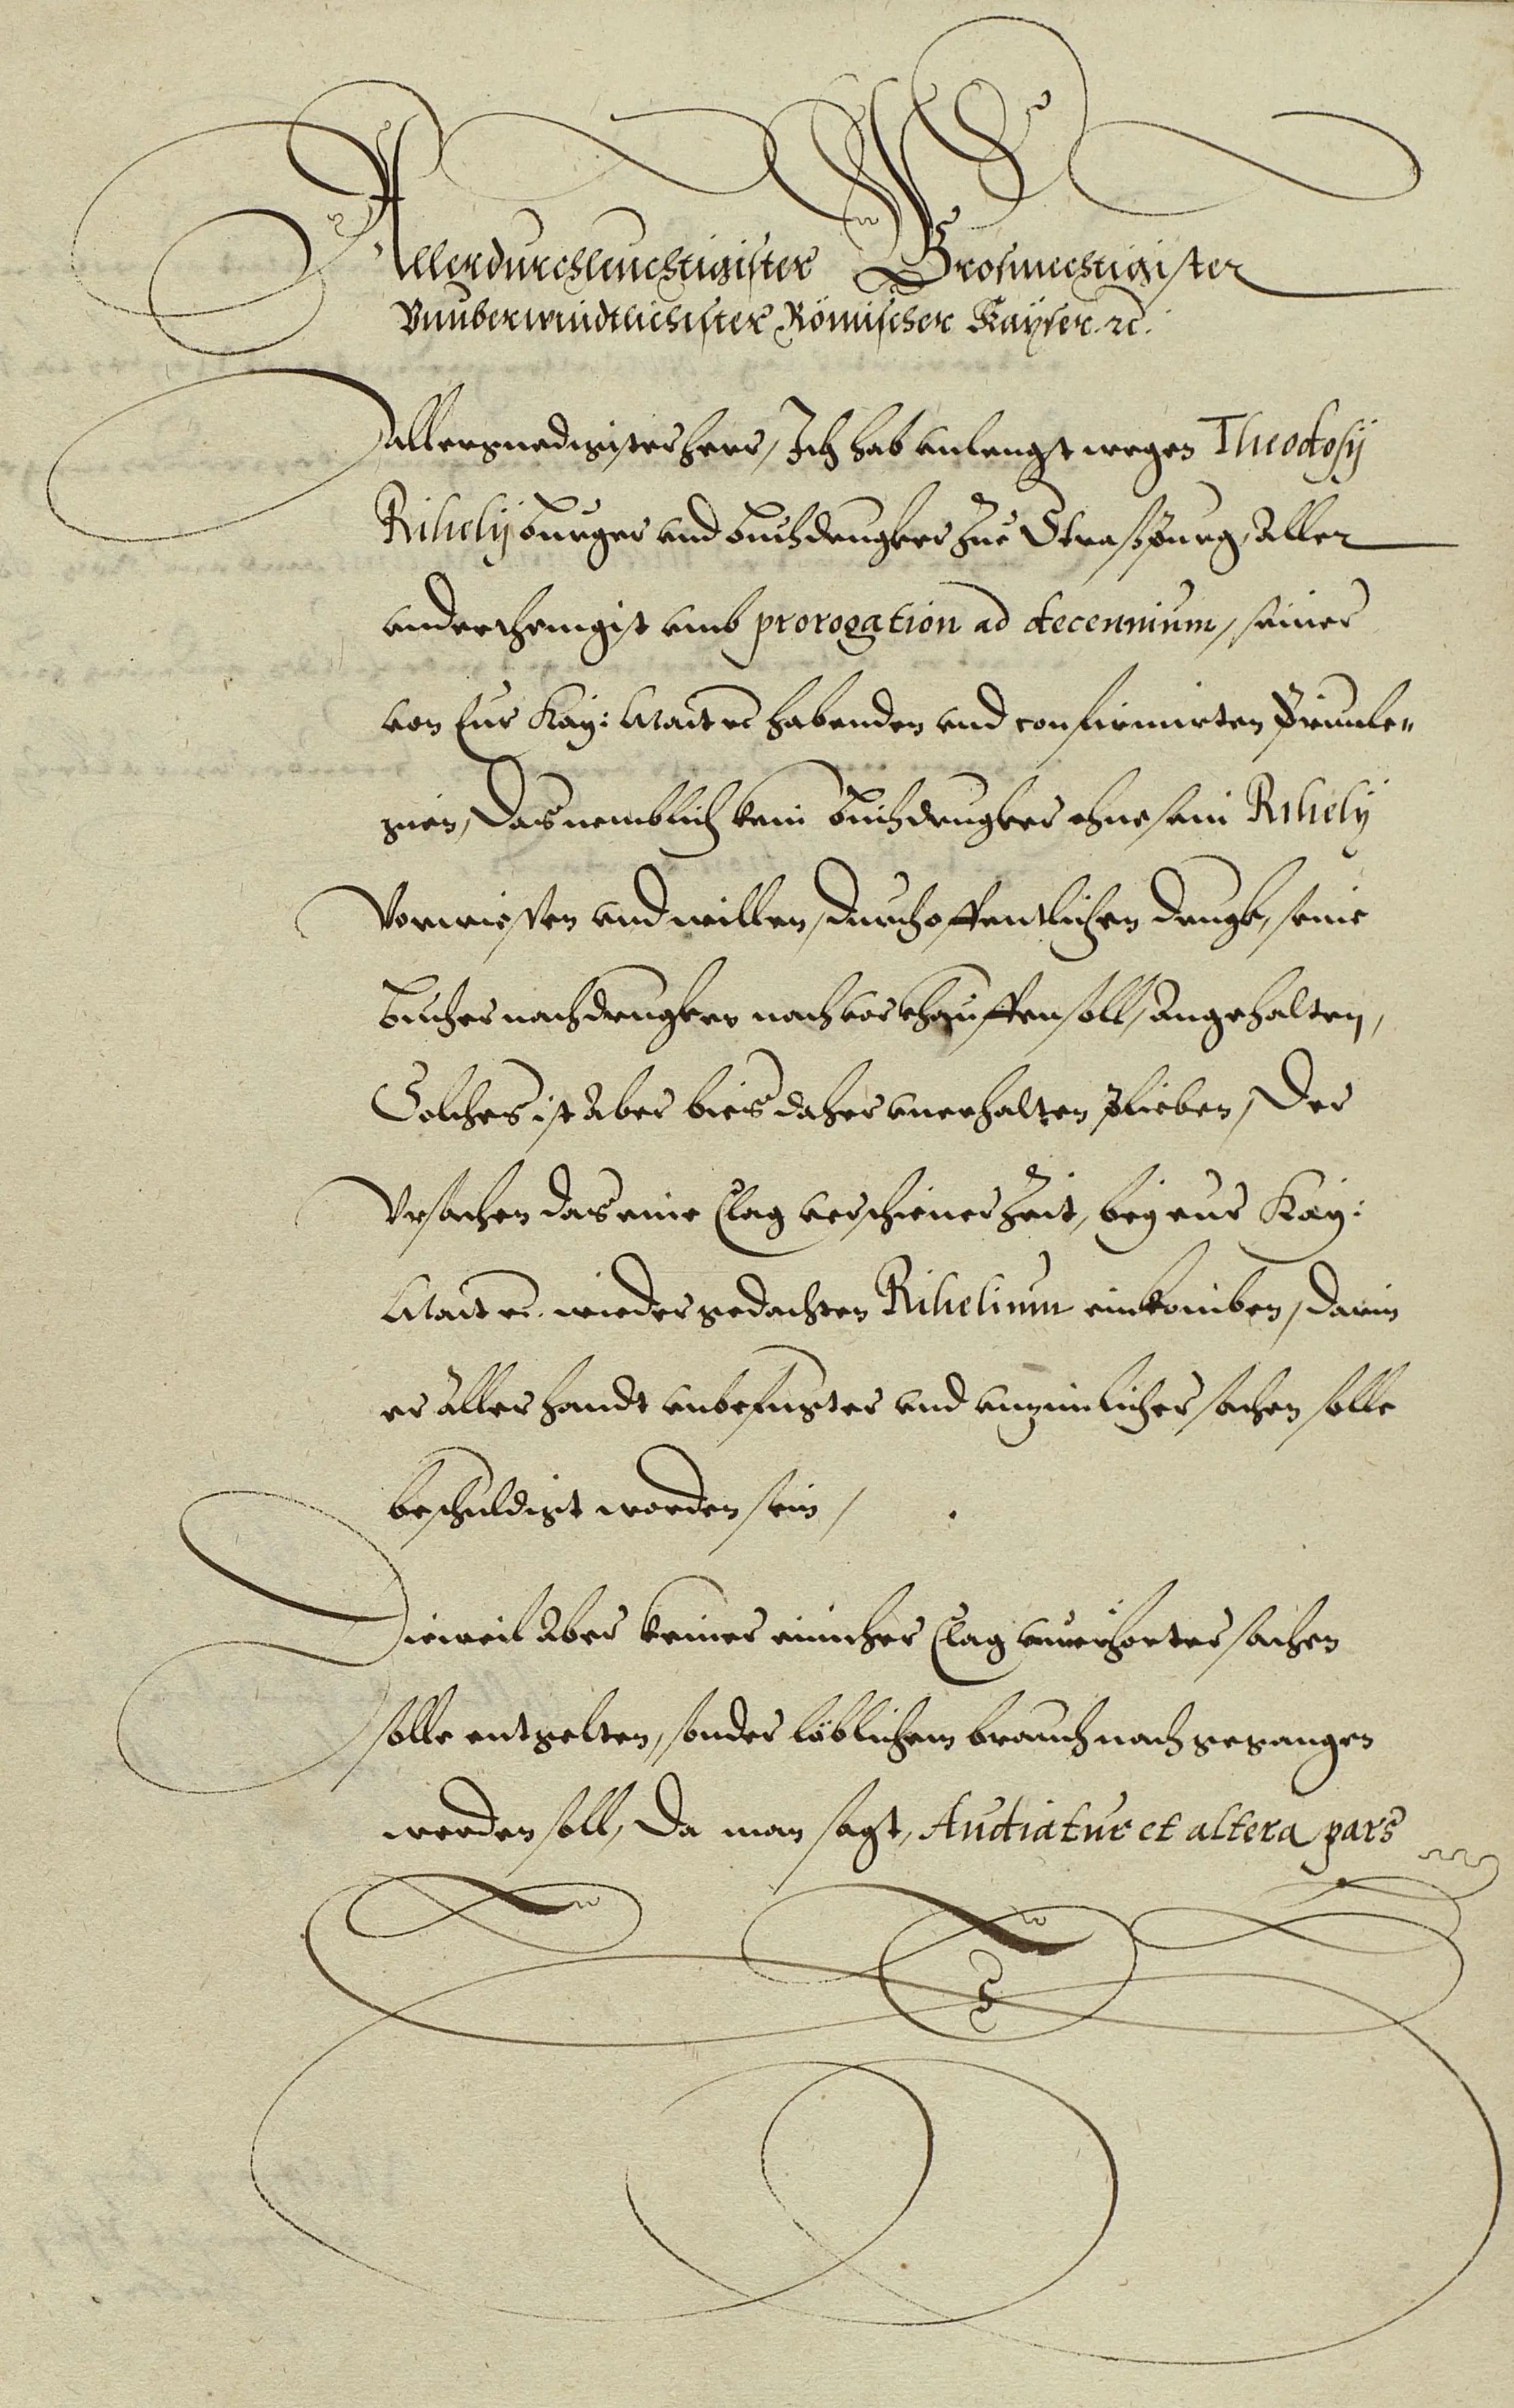 Allerdurchleuchtigister Grosmechtigister
Vnuberwindtlichister Römischer Kayser. etc.
Allergnedigister herr, Ich hab vnlengst wegen Theodosij
Rihelij burger vnd buchdrugker zue Straßpurg, Aller
vnderthenigist vmb prorogation ad decennium, seiner
von Eur Kay: Maÿt etc habenden vnd confirmirten Priuile„
gien, Das nemblich kein buchdrugker ohne sein Rihelij
Vorwiessen vnd willen, durch offentlichen drugk, seine
bucher nachdrugken noch verkhauffen soll, Angehalten,
Solches ist Aber bies daher vnerhalten plieben, Der
Vrsachen das eine Clag verschiener Zeit, bey eur Kay:
Maÿt etc. wieder gedachten Rihelium einkomben, darin
er Aller handt vnbefugter vnd vnzimlicher sachen solle
beschuldigt worden sein /
Dieweil Aber keiner einicher Clag vnuerhorter sachen
solle entgelten, sonder löblichem brauch nach gegangen
werden soll, Da man sagt, Audiatur et altera pars